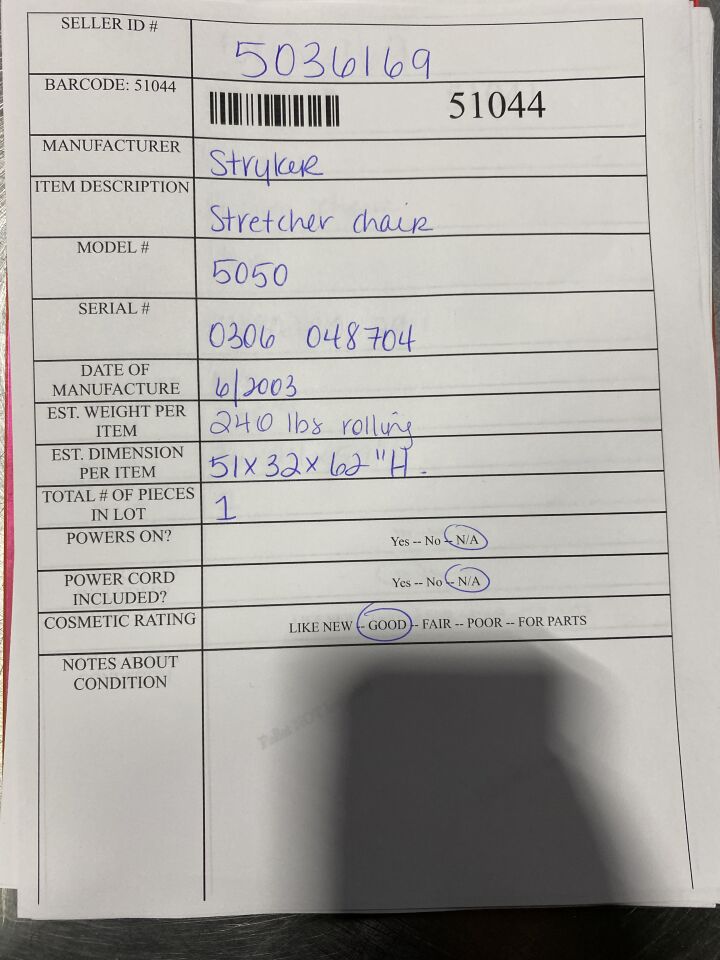 SELLER ID #
5036169
BARCODE: 51044
51044
MANUFACTURER
Stryker
ITEM DESCRIPTION
Stretcher chair
MODEL #
5050
SERIAL #
0306 048704
DATE OF
MANUFACTURE
6/2003
EST. WEIGHT PER
ITEM
240 lbs rolling
EST. DIMENSION
PER ITEM
51 x 32 x 62 "H.
TOTAL # OF PIECES
IN LOT
1
POWERS ON?
Yes -- No -- N/A
POWER CORD
INCLUDED?
Yes -- No -- N/A
COSMETIC RATING
LIKE NEW -- GOOD -- FAIR -- POOR -- FOR PARTS
NOTES ABOUT
CONDITION